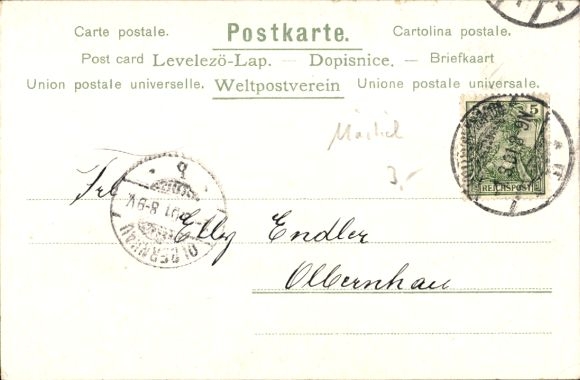 Carte postale. Postkarte. Cartolina postale.
Post card Levelezö-Lap. — Dopisnice. — Briefkaart
Union postale universelle. Weltpostverein Unione postale universale.
5
REICHSPOST
3.-
OLBERNHAU
8-9V.
Frl. Elly Endler
Olbernhau